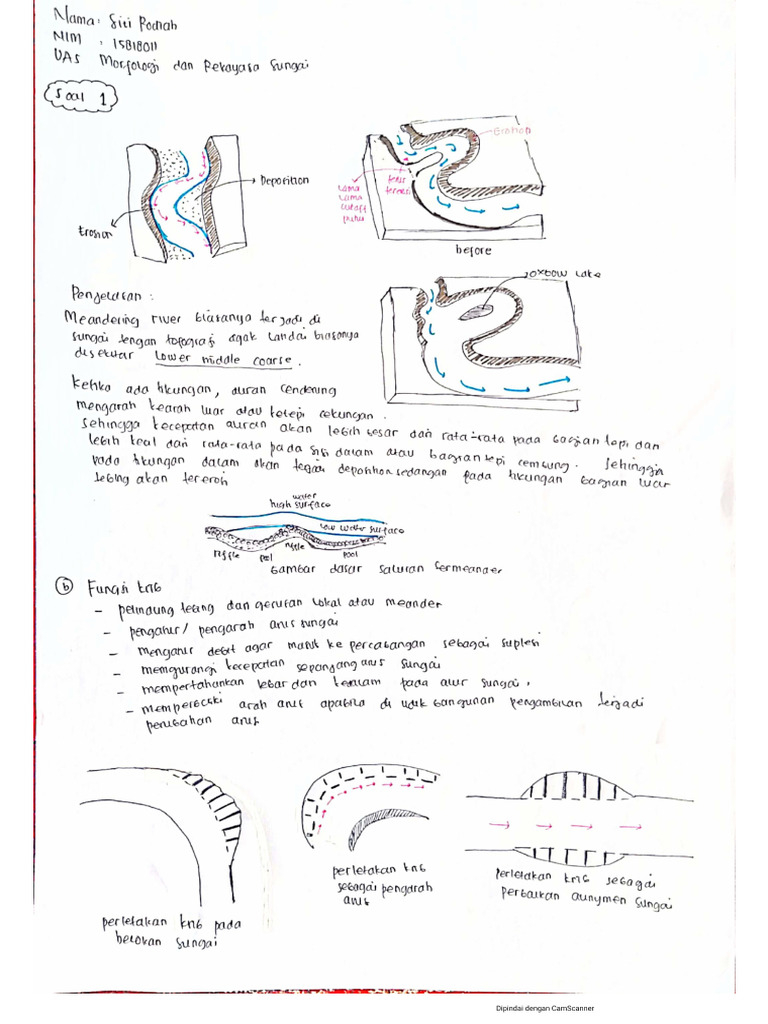 Nama: Siti Podiah
NIM : 15818011
UAS Morfologi dan Rekayasa Sungai
Soal 1
Deposition
Erosion
Erosion
lama lama cutoff putus
terus tererosi
before
oxbow lake
Penjelasan :
Meandering river biasanya terjadi di
sungai dengan topografi agak landai biasanya
disekitar lower middle coarse.
Ketika ada tikungan, aliran cenderung
mengarah kearah luar atau ketepi cekungan.
Sehingga kecepatan aliran akan lebih besar dari rata-rata pada bagian tepi dan
lebih kecil dari rata-rata pada sisi dalam atau bagian tepi cembung. Sehingga
pada tikungan dalam akan terjadi deposition sedangan pada tikungan bagian luar
tebing akan tererosi
water
high surface
low water surface
riffle pool riffle pool
Gambar dasar saluran bermeander
b Fungsi krib
- pelindung tebing dari gerusan lokal atau meander
- pengatur / pengarah arus sungai
- mengatur debit agar masuk ke percabangan sebagai suplesi
- mengurangi kecepatan sepanjang arus sungai
- mempertahankan lebar dan kedalam pada alur sungai.
- memperbaiki arah arus apabila di udik bangunan pengambilan terjadi
perubahan arus
perletakan krib pada
belokan sungai
perletakan krib
sebagai pengarah
arus
perletakan krib sebagai
perbaikan alinyemen sungai
Dipindai dengan CamScanner